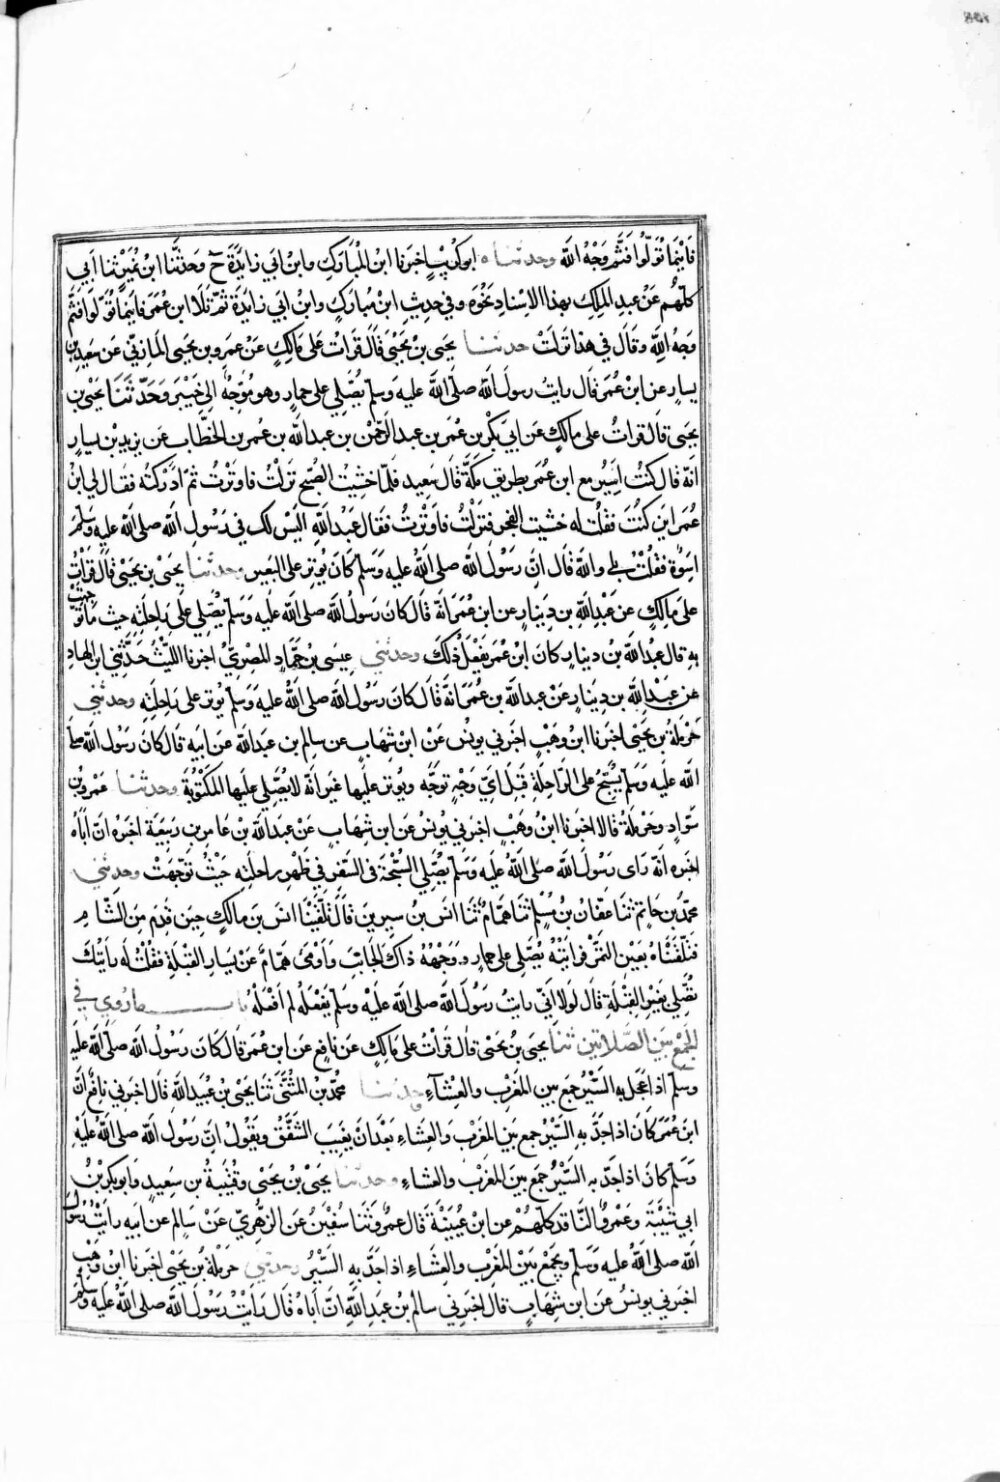 فَاَيْنَمَا تُوَلّوُا فَثَمَّ وَجْهُ اللّه وحدثناه ابوكُرَيبٍ اخبرنا ابنُ المبَارَكِ وابنُ ابي زايدَةَ ح وحَدثنَا ابنُ نُمَيْرٍ ثنا اَبِي
كلهُم عَنْ عبدِ الملكِ بهذا الاِسنادِ نحْوَه وفي حديثِ ابنِ مُبَارَكٍ وابنِ ابي زايدَة ثمّ تَلَا ابن عُمَرَ فاينما تُوَلّوا فثمَّ
وجهُ اللهِ وقال في هذا نَزلَتْ حدثنا يحيى بنُ يَحْيَى قَالَ قَرَأتُ عَلى مَالِكٍ عَنْ عمرِو بنِ يحيى المازِنيّ عن سعيدِ بنِ
يسارٍ عن ابنِ عُمَرَ قال رايتُ رسولَ الله صلّى اللهُ عليه وَسلّم يُصَلِّي على حمارٍ وهو مُوَجِّهٌ الى خَيْبَرَ وَحَدّثَنَا يَحْيَى بنُ
يحيى قالَ قراتُ على مالكٍ عَن ابي بكْرِ بن عُمَرَ بن عبدِ الرّحْمنِ بن عبدِ اللّه بن عُمرَ بنِ الخطّاب عَن يزيدِ بْن يسارٍ
انّه قال كنتُ اَسِيرُ مع ابن عُمَرَ بطريقِ مَكّةَ قالَ سَعِيد فلمّا خشيتُ الصُّبحَ نزلْتُ فاوترْتُ ثمّ ادْرَكتُه فقال لي ابنُ
عُمَرَ اينَ كُنْتَ فقلتُ له خشيتُ الفجرَ فنزلْتُ فاوْترْتُ فقال عبْدُ اللهِ اليْسَ لك في رَسُولِ اللهِ صلى اللّه عليه وسَلّمَ
اسْوَةٌ فقُلْتُ بلى واللّه قَال انّ رَسُولَ اللّه صلى اللّهُ عليه وَسَلّمَ كَانَ يُوتِرُ على البعيرِ وحدثنا يحيَى بن يحيَى قالَ قرَاْتُ
علَى مالِكٍ عن عَبْدِ اللّه بنِ دِينارٍ عن ابنِ عُمَرَ انّه قال كانَ رَسُولُ اللّه صلى اللّه عليه وسلم يُصَلِّي على رَاحِلَتِه حيث ما توجّهت
به قال عبدُ اللّه بنُ دينارٍ كانَ ابنُ عمرَ يَفْعَلُ ذلكَ وحدثني عيسَى بن حمّادٍ المصرِيُّ اخبرنا الليْثُ حَدَّثَنِي ابن الهادِ
عَن عَبْدِ اللّه بن دينارٍ عَنْ عبدِ اللّه بن عُمَرَ انّهُ قَالَ كانَ رَسُولُ اللّه صلى اللّهُ عليه وَسلم يُوتِرُ على رَاحِلَتِهِ وحدثني
حَرْمَلَةُ بن يحيى اَخبرَنا ابنُ وَهْبٍ اخبرني يونسُ عَنْ ابنِ شِهَابٍ عن سالمِ بن عبدِ اللّهِ عَن ابيه قال كانَ رسولُ اللّه صلّى
اللّه عليه وَسَلّم يُسَبِّحُ على الرّاحِلَةِ قِبَلَ ايِّ وَجْهٍ توجَّه ويُوتِرُ عليها غيْرَ انّه لا يُصَلِّي عليها المكْتُوبَةَ وحدثنا عمرُو بنُ
سَوّادٍ وحرملَةُ قالا اخبرنا ابنُ وهْبٍ اخبرني يُونسُ عَن ابنِ شِهَابٍ عَنْ عبدِ اللّه بْن عَامِرِ بن رَبِيعَةَ اخبَرَه انّ اَبَاهُ
اخبره انّه رَاى رَسُولَ اللّه صلى اللّهُ عليه وَسَلّم يُصَلِّي السُّبْحَةَ في السّفَرِ في ظَهْرِ راحلتِه حَيْثُ توَجّهَتْ وحدثني
محمّدُ بن حَاتِمٍ ثنا عفانُ بنُ مُسْلِمٍ ثنا همامٌ ثنا انسُ بنُ سيرِينَ قَالَ تَلَقّيْنَا انسَ بن مَالِكٍ حِينَ قَدِمَ مِنَ الشّامِ
فتلقيناهُ بعَيْنِ التّمْرِ فرايتُه يُصَلّي على حمارٍ ووَجْهُهُ ذاكَ الجانِبَ وَاَوْمَى همّامٌ عَنْ يسَارِ القبْلَةِ فقُلتُ لَه رايتُكَ
تصَلّي لغَيرِ القِبْلَةِ قالَ لَولا اَنّي رايتُ رَسُولَ اللّه صلى اللّه عَلَيْه وسَلّم يَفْعَلُهُ لم افْعَلْهُ باب ما رُوي في
الجمع بَين الصَّلاتين ثَنا يحيى بنُ يحْيَى قالَ قرأتُ على مَالِكٍ عن نافِعٍ عَن ابن عُمَرَ قال كَانَ رسولُ اللّه صلى اللّهُ علَيْه
وسلم اذا عَجِلَ بهِ السَّيْرُ جَمَعَ بين المَغْربِ والعِشَآءِ حدثنا محمّدُ بْنُ المُثَنَّى ثنا يَحْيَى بْنُ عُبَيدِ اللّه قال اخبرني نافِعٌ انَّ
ابنَ عُمَرَ كَانَ اذا جَدَّ به السَّيْرُ جمع بينَ المغرب والعشاءِ بَعْدَ اَنْ يَغِيبَ الشّفَقُ ويَقُولُ انّ رَسُولَ اللّه صلى اللّهُ عليْهِ
وَسَلّمَ كانَ اذا جَدّ به السَّيْرُ جَمَعَ بينَ المَغْرَبِ والعشاءِ وحدثنا يَحْيَى بْنُ يحيى وقُتَيبَةُ بن سَعيدٍ وابو بكرِ بْنُ
ابي شَيْبَةَ وعَمْرٌو النّاقد كلّهُمْ عن ابنِ عُيَيْنَةَ قَالَ عَمْرٌو ثنا سُفْيَنُ عَن الزّهْرِيّ عَنْ سَالِم عن ابيه رأيْتُ رسولَ
اللّه صلى اللّهُ عليْه وسلم يجمعُ بَيْنَ المَغْرِبِ والعِشَاءِ اذا جَدَّ بِهِ السَّيْرُ وحدثني حرملةُ بْن يَحْيَى اخبرنا ابنُ وَهْبٍ
اخبرني يونسُ عَنِ ابنِ شِهَابٍ قال اخبَرني سالمُ بْن عبدِ اللّهِ انّ اَبَاهُ قَال رَاَيْتُ رَسُولَ اللّه صلى اللّهُ عليْه وسلّم